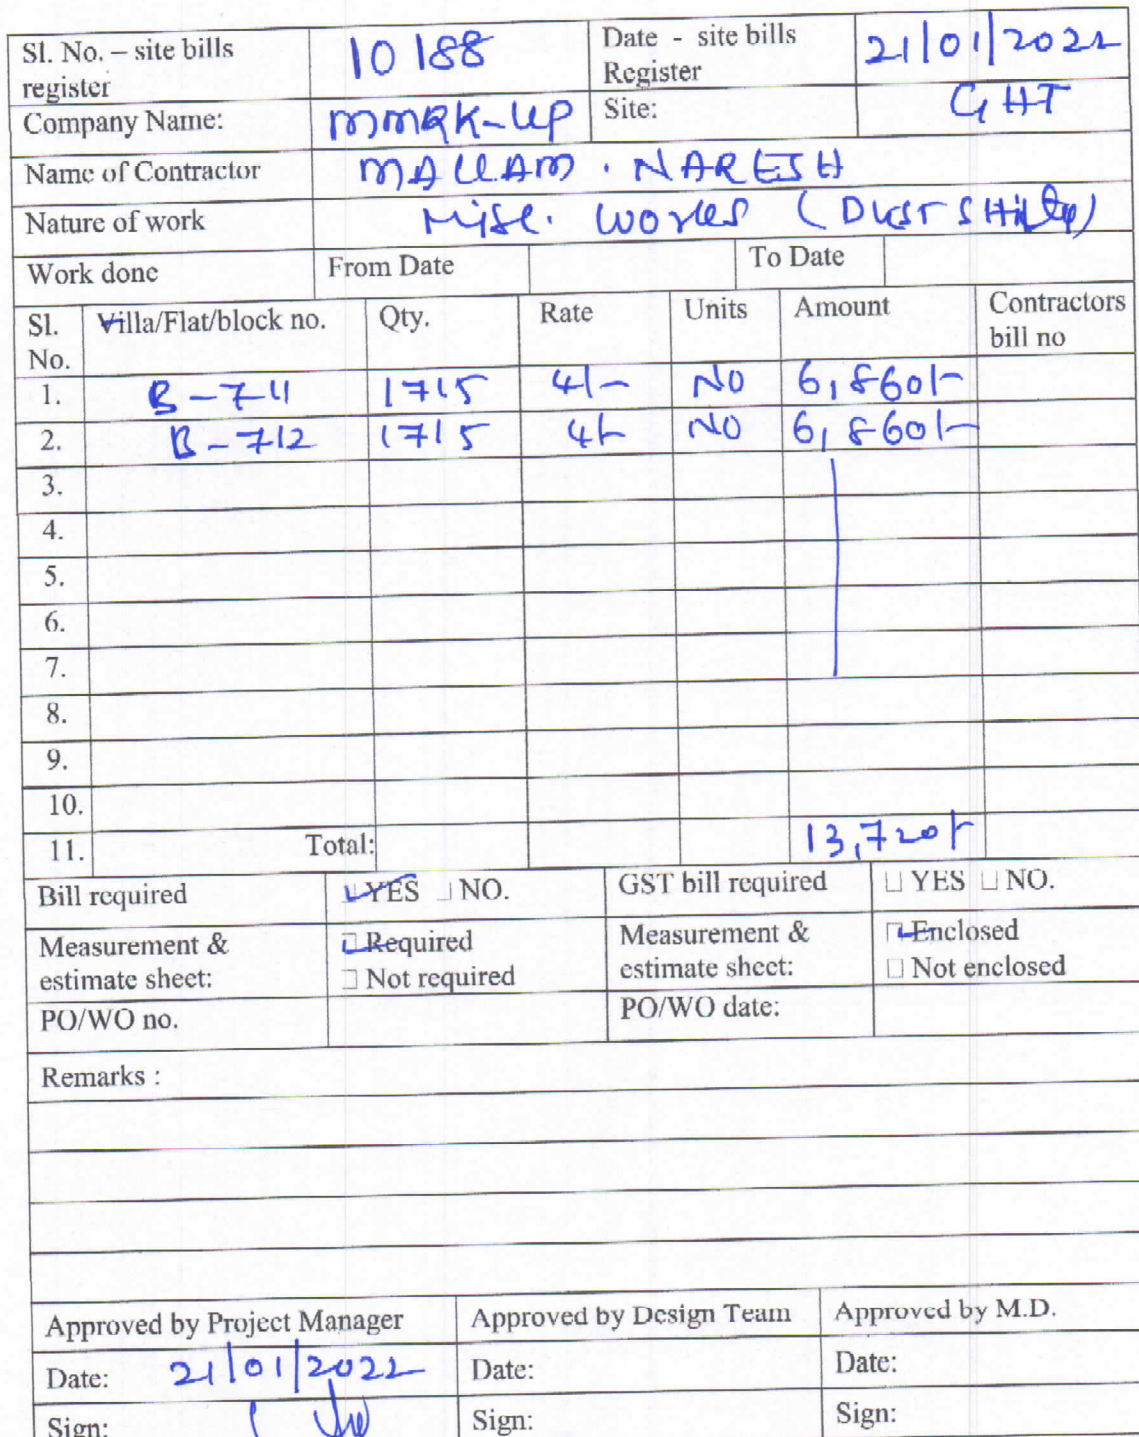 Sl. No. – site bills register 10188 Date - site bills Register 21/01/2022
Company Name: MMRK-UP Site: GHT
Name of Contractor MALLAM . NARESH
Nature of work Misc. works (DUST
Work done From Date To Date
Sl. No. Villa/Flat/block no. Qty. Rate Units Amount Contractors bill no
1. B-711 1715 4/- NO 6,860/-
2. B-712 1715 4/- NO 6,860/-
3.
4.
5.
6.
7.
8.
9.
10.
11. Total: 13,720/-
Bill required YES NO. GST bill required YES NO.
Measurement & estimate sheet: Required Not required Measurement & estimate sheet: Enclosed Not enclosed
PO/WO no. PO/WO date:
Remarks :
Approved by Project Manager Approved by Design Team Approved by M.D.
Date: 21/01/2022 Date: Date:
Sign: Sign: Sign: